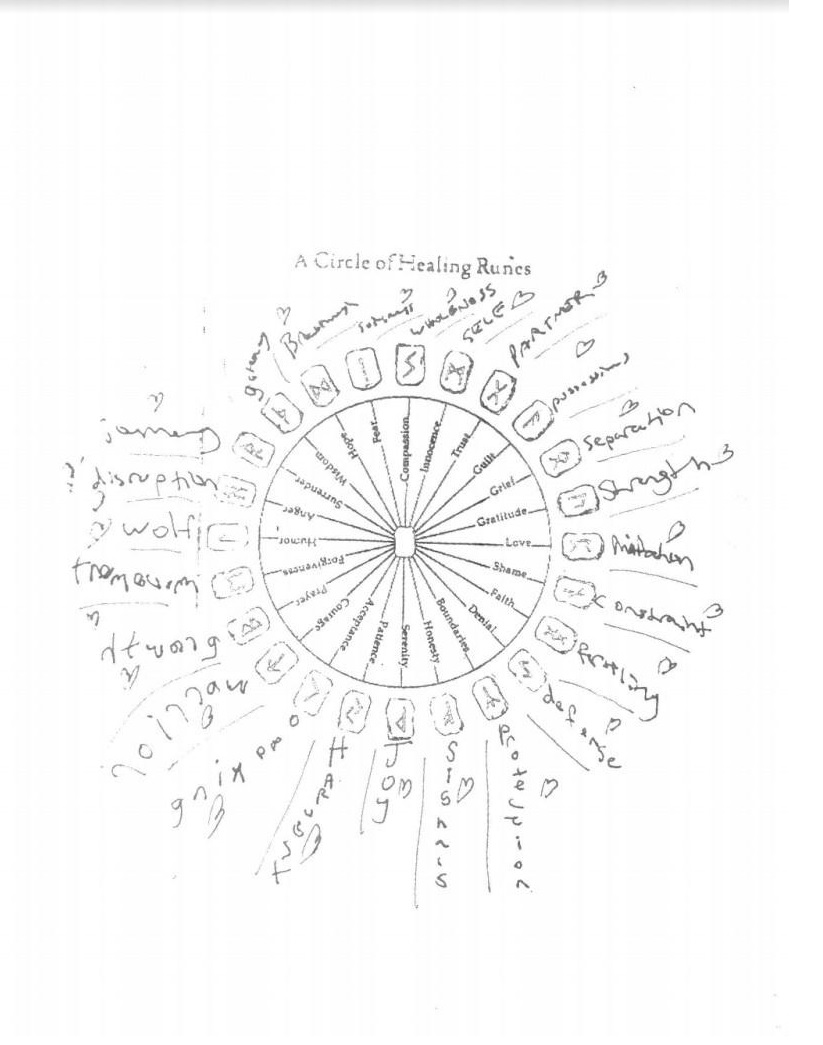 A Circle of Healing Runes
WHOLENESS
SELF
PARTNER
possessions
Separation
Strength
constraint
fertility
defense
protection
Signals
Joy
HARVEST
opening
warrior
growth
movement
wolf
disruption
journey
gateway
Compassion
Innocence
Trust
Guilt
Grief
Gratitude
Love
Shame
Faith
Denial
Boundaries
Honesty
Serenity
Patience
Acceptance
Courage
Prayer
Forgiveness
Humor
Anger
Surrender
Wisdom
Hope
Fear